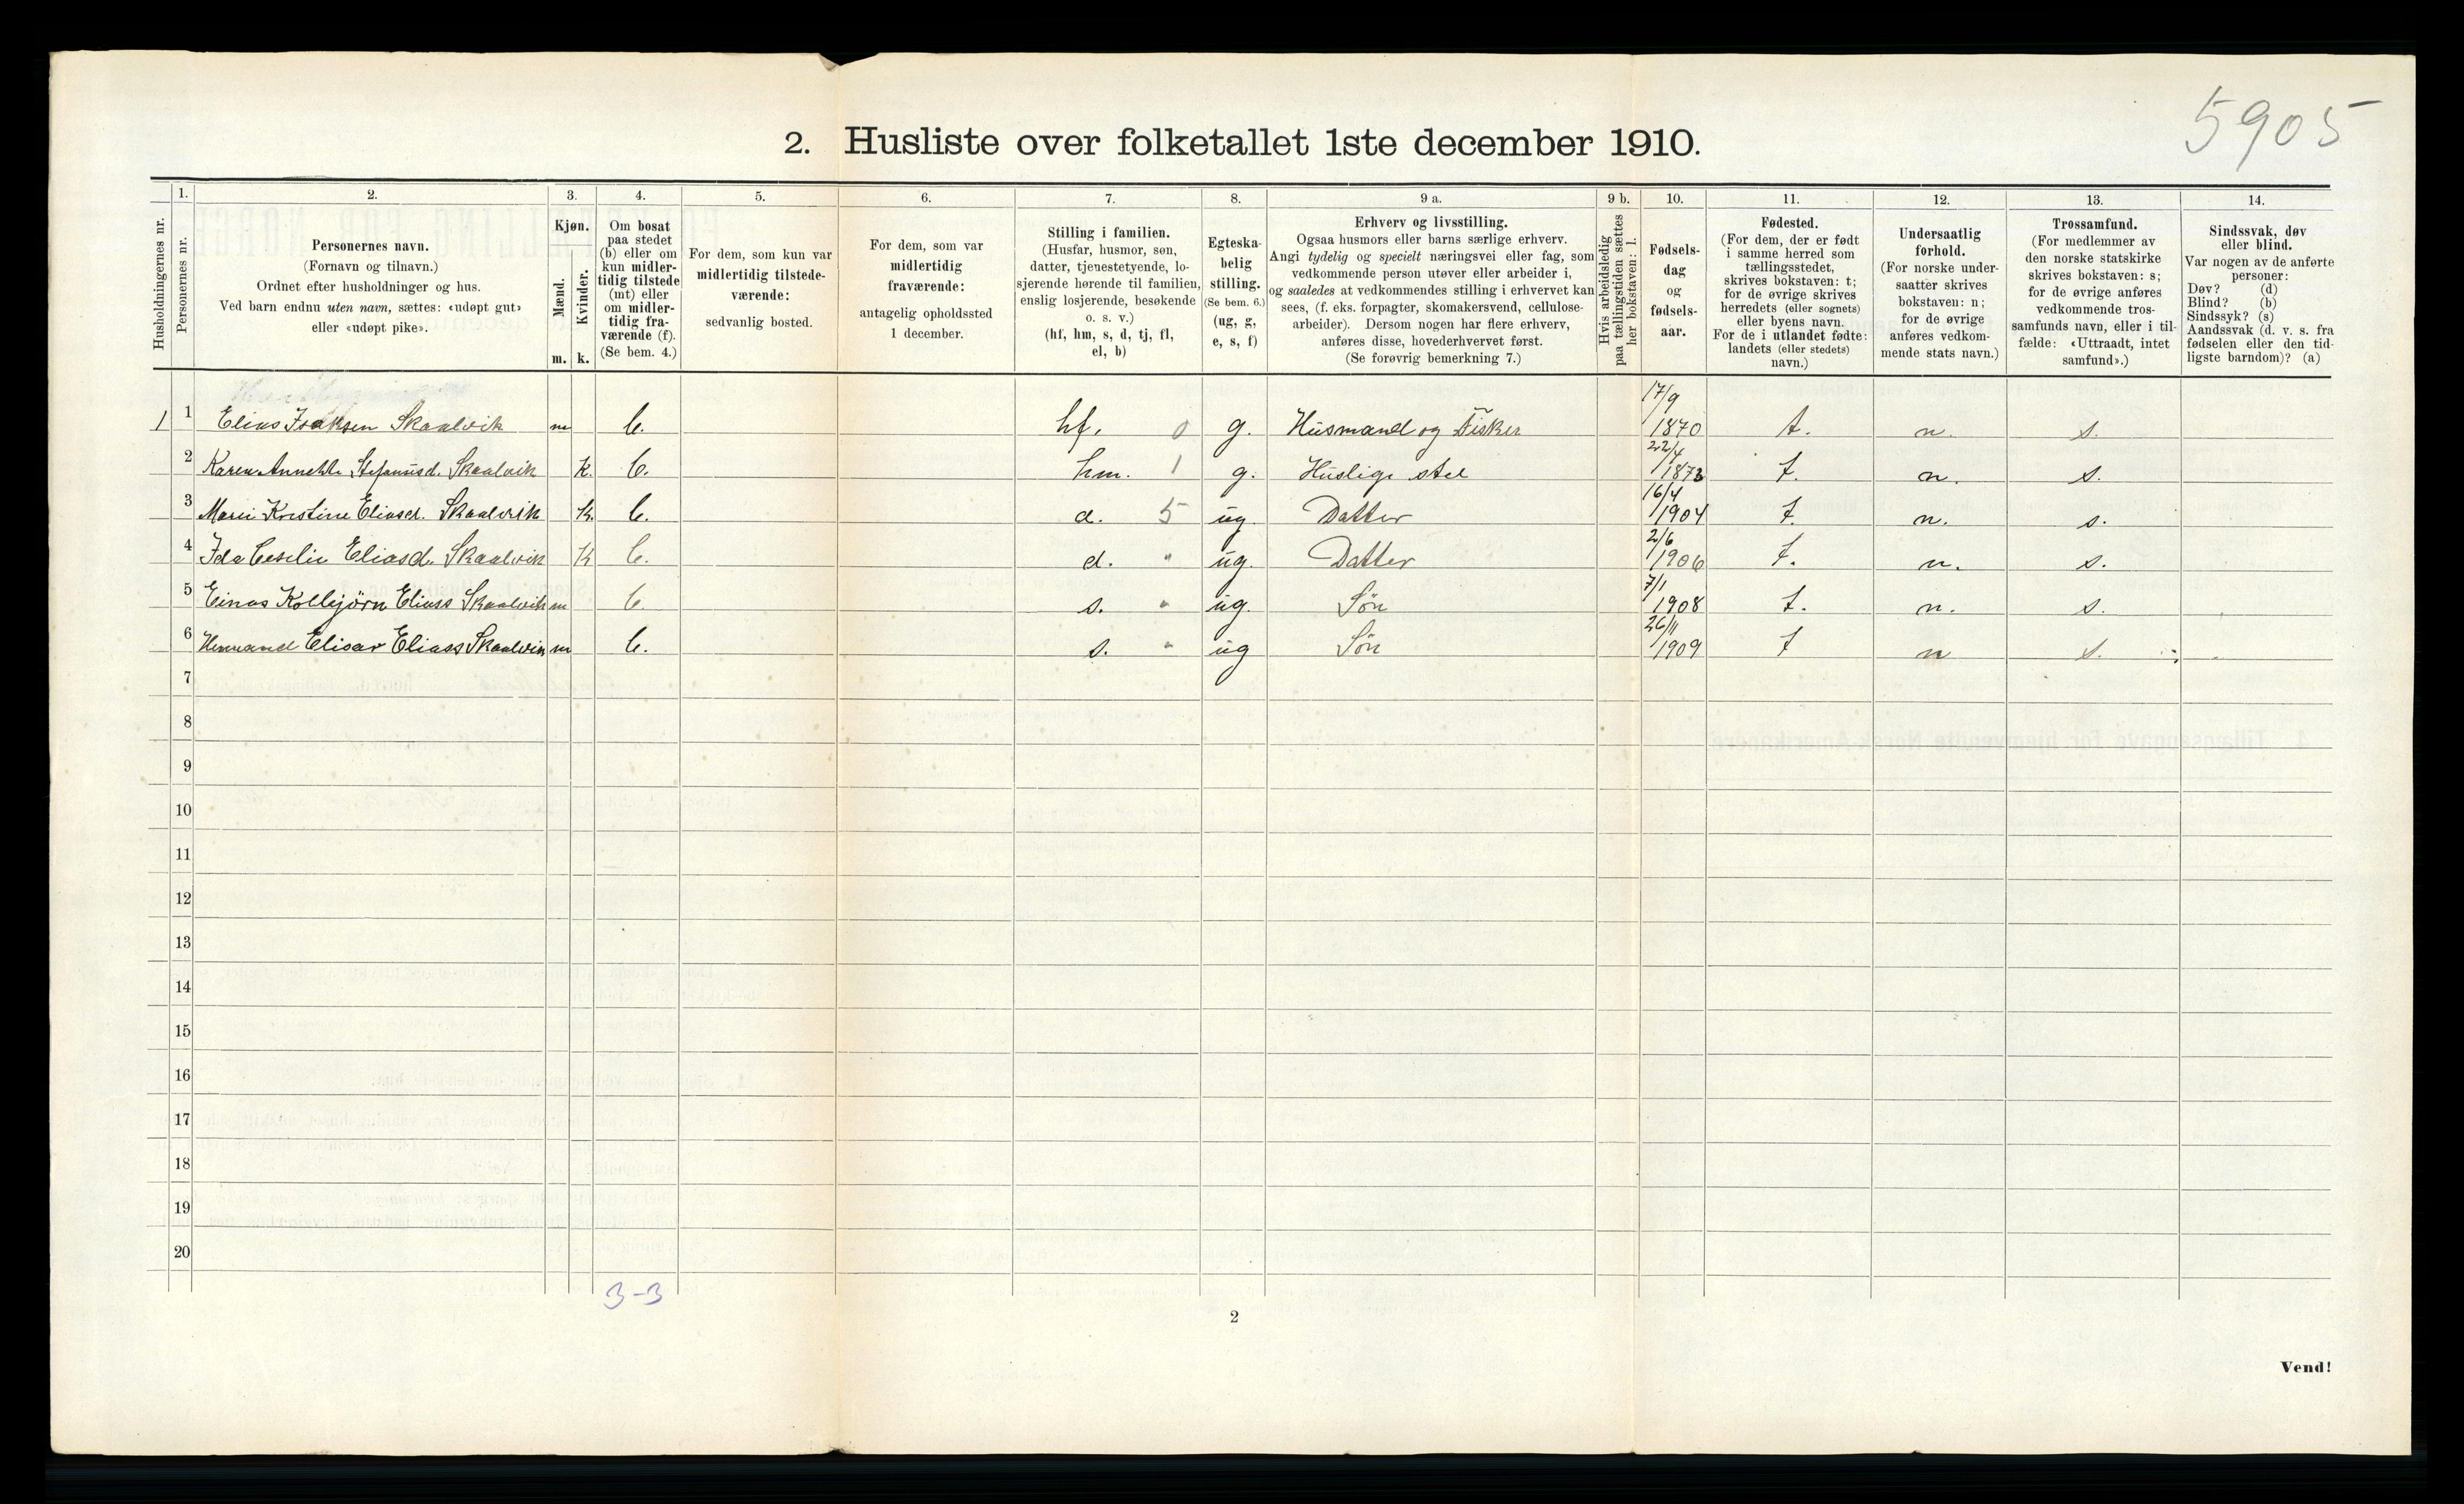 5905
2. Husliste over folketallet 1ste december 1910.
Husholdningernes nr.
1.
Personernes nr.
2.
Personernes navn.
(Fornavn og tilnavn.)
Ordnet efter husholdninger og hus.
Ved barn endnu uten navn, sættes: «udøpt gut»
eller «udøpt pike».
3.
Kjøn.
Mænd.
Kvinder.
m. k.
4.
Om bosat
paa stedet
(b) eller om
kun midler-
tidig tilstede
(mt) eller
om midler-
tidig fra-
værende (f).
(Se bem. 4.)
5.
For dem, som kun var
midlertidig tilstede-
værende:
sedvanlig bosted.
6.
For dem, som var
midlertidig
fraværende:
antagelig opholdssted
1 december.
7.
Stilling i familien.
(Husfar, husmor, søn,
datter, tjenestetyende, lo-
sjerende hørende til familien,
enslig losjerende, besøkende
o. s. v.)
(hf, hm, s, d, tj, fl,
el, b)
8.
Egteska-
belig
stilling.
(Se bem. 6.)
(ug, g,
e, s, f)
9 a.
Erhverv og livsstilling.
Ogsaa husmors eller barns særlige erhverv.
Angi tydelig og specielt næringsvei eller fag, som
vedkommende person utøver eller arbeider i,
og saaledes at vedkommendes stilling i erhvervet kan
sees, (f. eks. forpagter, skomakersvend, cellulose-
arbeider). Dersom nogen har flere erhverv,
anføres disse, hovederhvervet først.
(Se forøvrig bemerkning 7.)
9 b.
Hvis arbeidsledig
paa tællingstiden sættes
her bokstaven: l.
10.
Fødsels-
dag
og
fødsels-
aar.
11.
Fødested.
(For dem, der er født
i samme herred som
tællingsstedet,
skrives bokstaven: t;
for de øvrige skrives
herredets (eller sognets)
eller byens navn.
For de i utlandet fødte:
landets (eller stedets)
navn.)
12.
Undersaatlig
forhold.
(For norske under-
saatter skrives
bokstaven: n;
for de øvrige
anføres vedkom-
mende stats navn.)
13.
Trossamfund.
(For medlemmer av
den norske statskirke
skrives bokstaven: s;
for de øvrige anføres
vedkommende tros-
samfunds navn, eller i til-
fælde: «Uttraadt, intet
samfund».)
14.
Sindssvak, døv
eller blind.
Var nogen av de anførte
personer:
Døv? (d)
Blind? (b)
Sindssyk? (s)
Aandssvak (d. v. s. fra
fødselen eller den tid-
ligste barndom)? (a)
1 1 Elias Isaksen Skaalvik m b. hf. 0 g. Husmand og Fisker 17/9 1870 t. n. s.
2 Karen Annette Stefanusd. Skaalvik k. b. hm. 1 g. Huslige stel 22/4 1873 t. n. s.
3 Marie Kristine Eliasd. Skaalvik k. b. d. 5 ug. Datter 16/4 1904 t. n. s.
4 Ida Cesilie Eliasd. Skaalvik k b. d. " ug. Datter 2/6 1906 t. n. s.
5 Einar Kolbjörn Eliass Skaalvik m b. s. " ug. Sön 7/1 1908 t. n. s.
6 Elisar Eliass Skaalvik m b. s. " ug Sön 26/11 1909 t n s.
7
8
9
10
11
12
13
14
15
16
17
18
19
20
3-3
2
Vend!